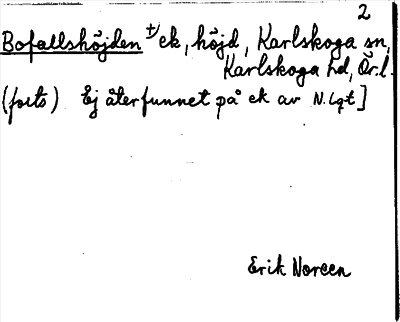 2
Bofallshöjden +/ ek, höjd, Karlskoga sn,
Karlskoga hd, Ör.l.
(forts) Ej återfunnet på ek av N. Lgt]
Erik Noreen